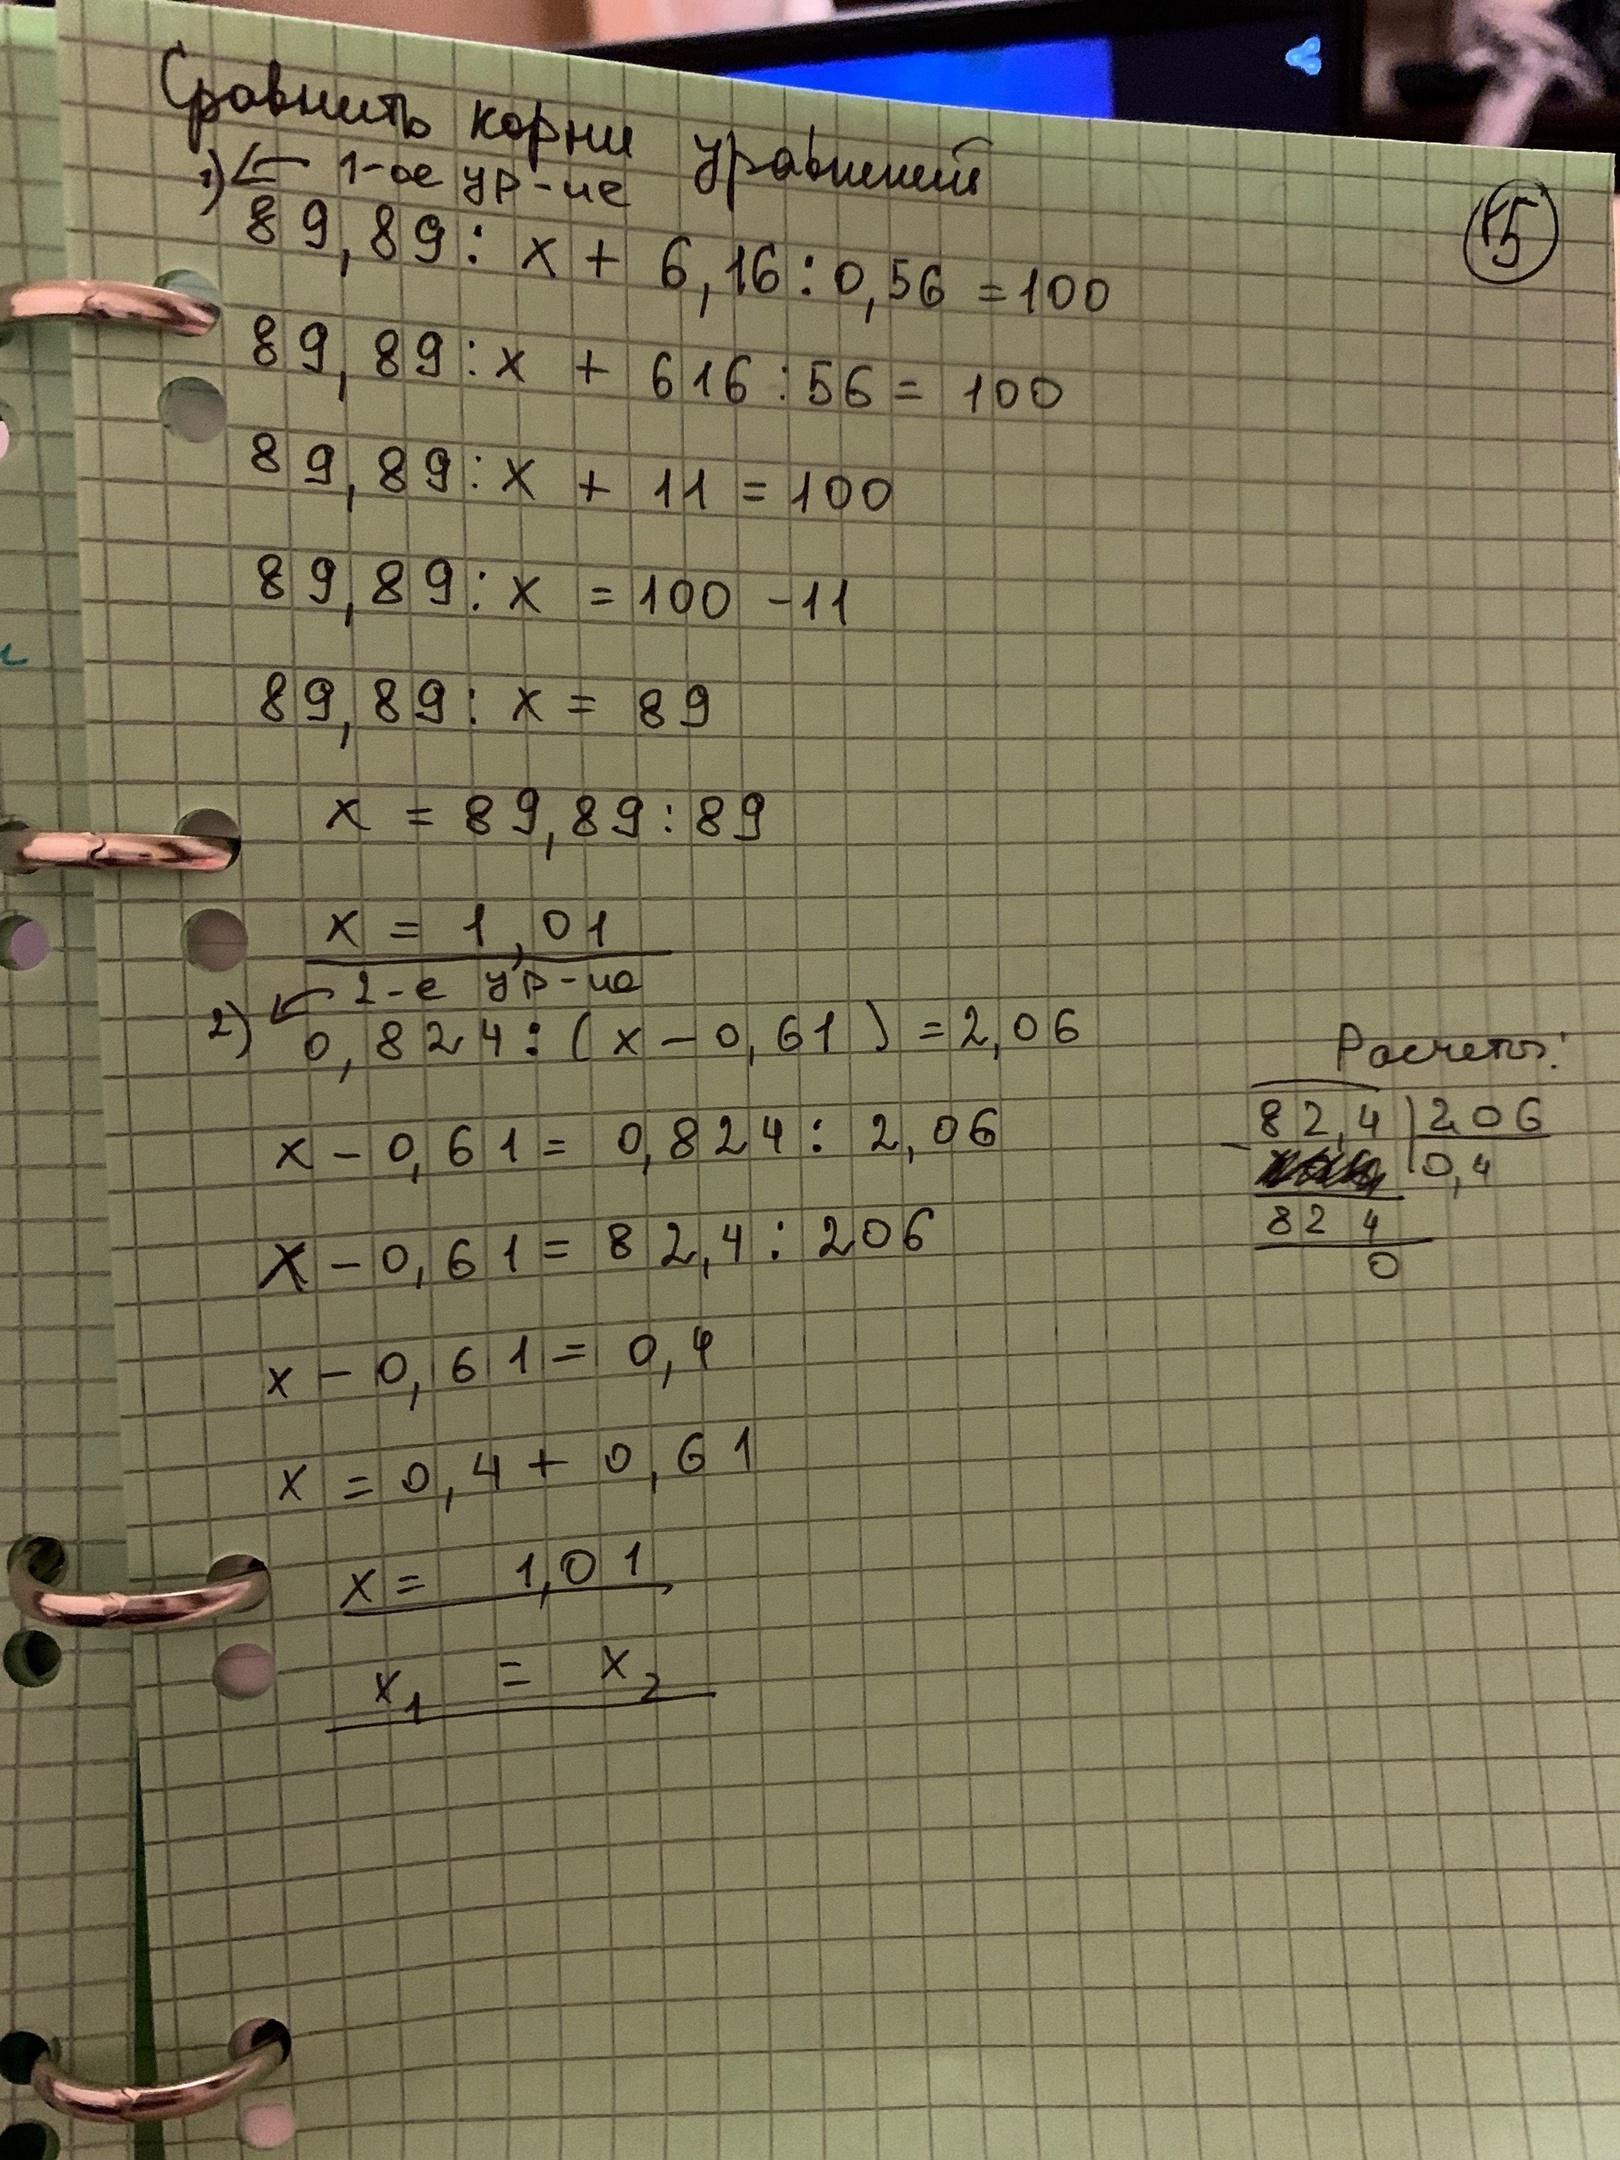 Сравнить корни уравнений
1) ← 1-ое ур-ие
15
89,89 : x + 6,16 : 0,56 = 100
89,89 : x + 616 : 56 = 100
89,89 : x + 11 = 100
89,89 : x = 100 - 11
89,89 : x = 89
x = 89,89 : 89
x = 1,01
← 2-е ур-ие
2) 0,824 : (x - 0,61) = 2,06
x - 0,61 = 0,824 : 2,06
x - 0,61 = 82,4 : 206
x - 0,61 = 0,4
x = 0,4 + 0,61
x = 1,01
x₁ = x₂
Расчеты:
82,4 | 206
- 0,4
824
0